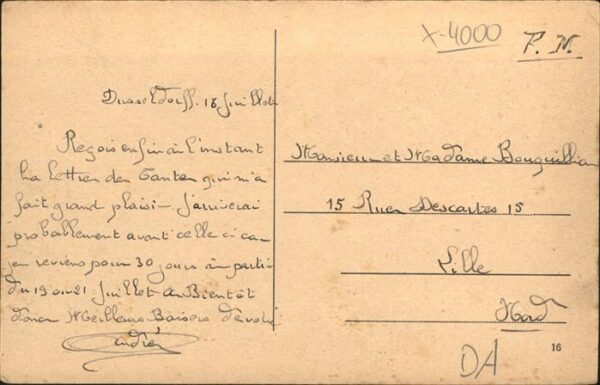 X-4000
F. M.
Dusseldorff. 16 Juillet
Reçois enfin à l'instant
la lettre de Tante qui m'a
fait grand plaisir j'arriverai
probablement avant celle ci car
je reviens pour 30 jours à partir
du 19 ou 21 Juillet a Bientôt
donc Meilleurs Baisers de votre
André
Monsieur et Madame Bouquillion
15 Rue Descartes 15
Lille
Nord
16
DA